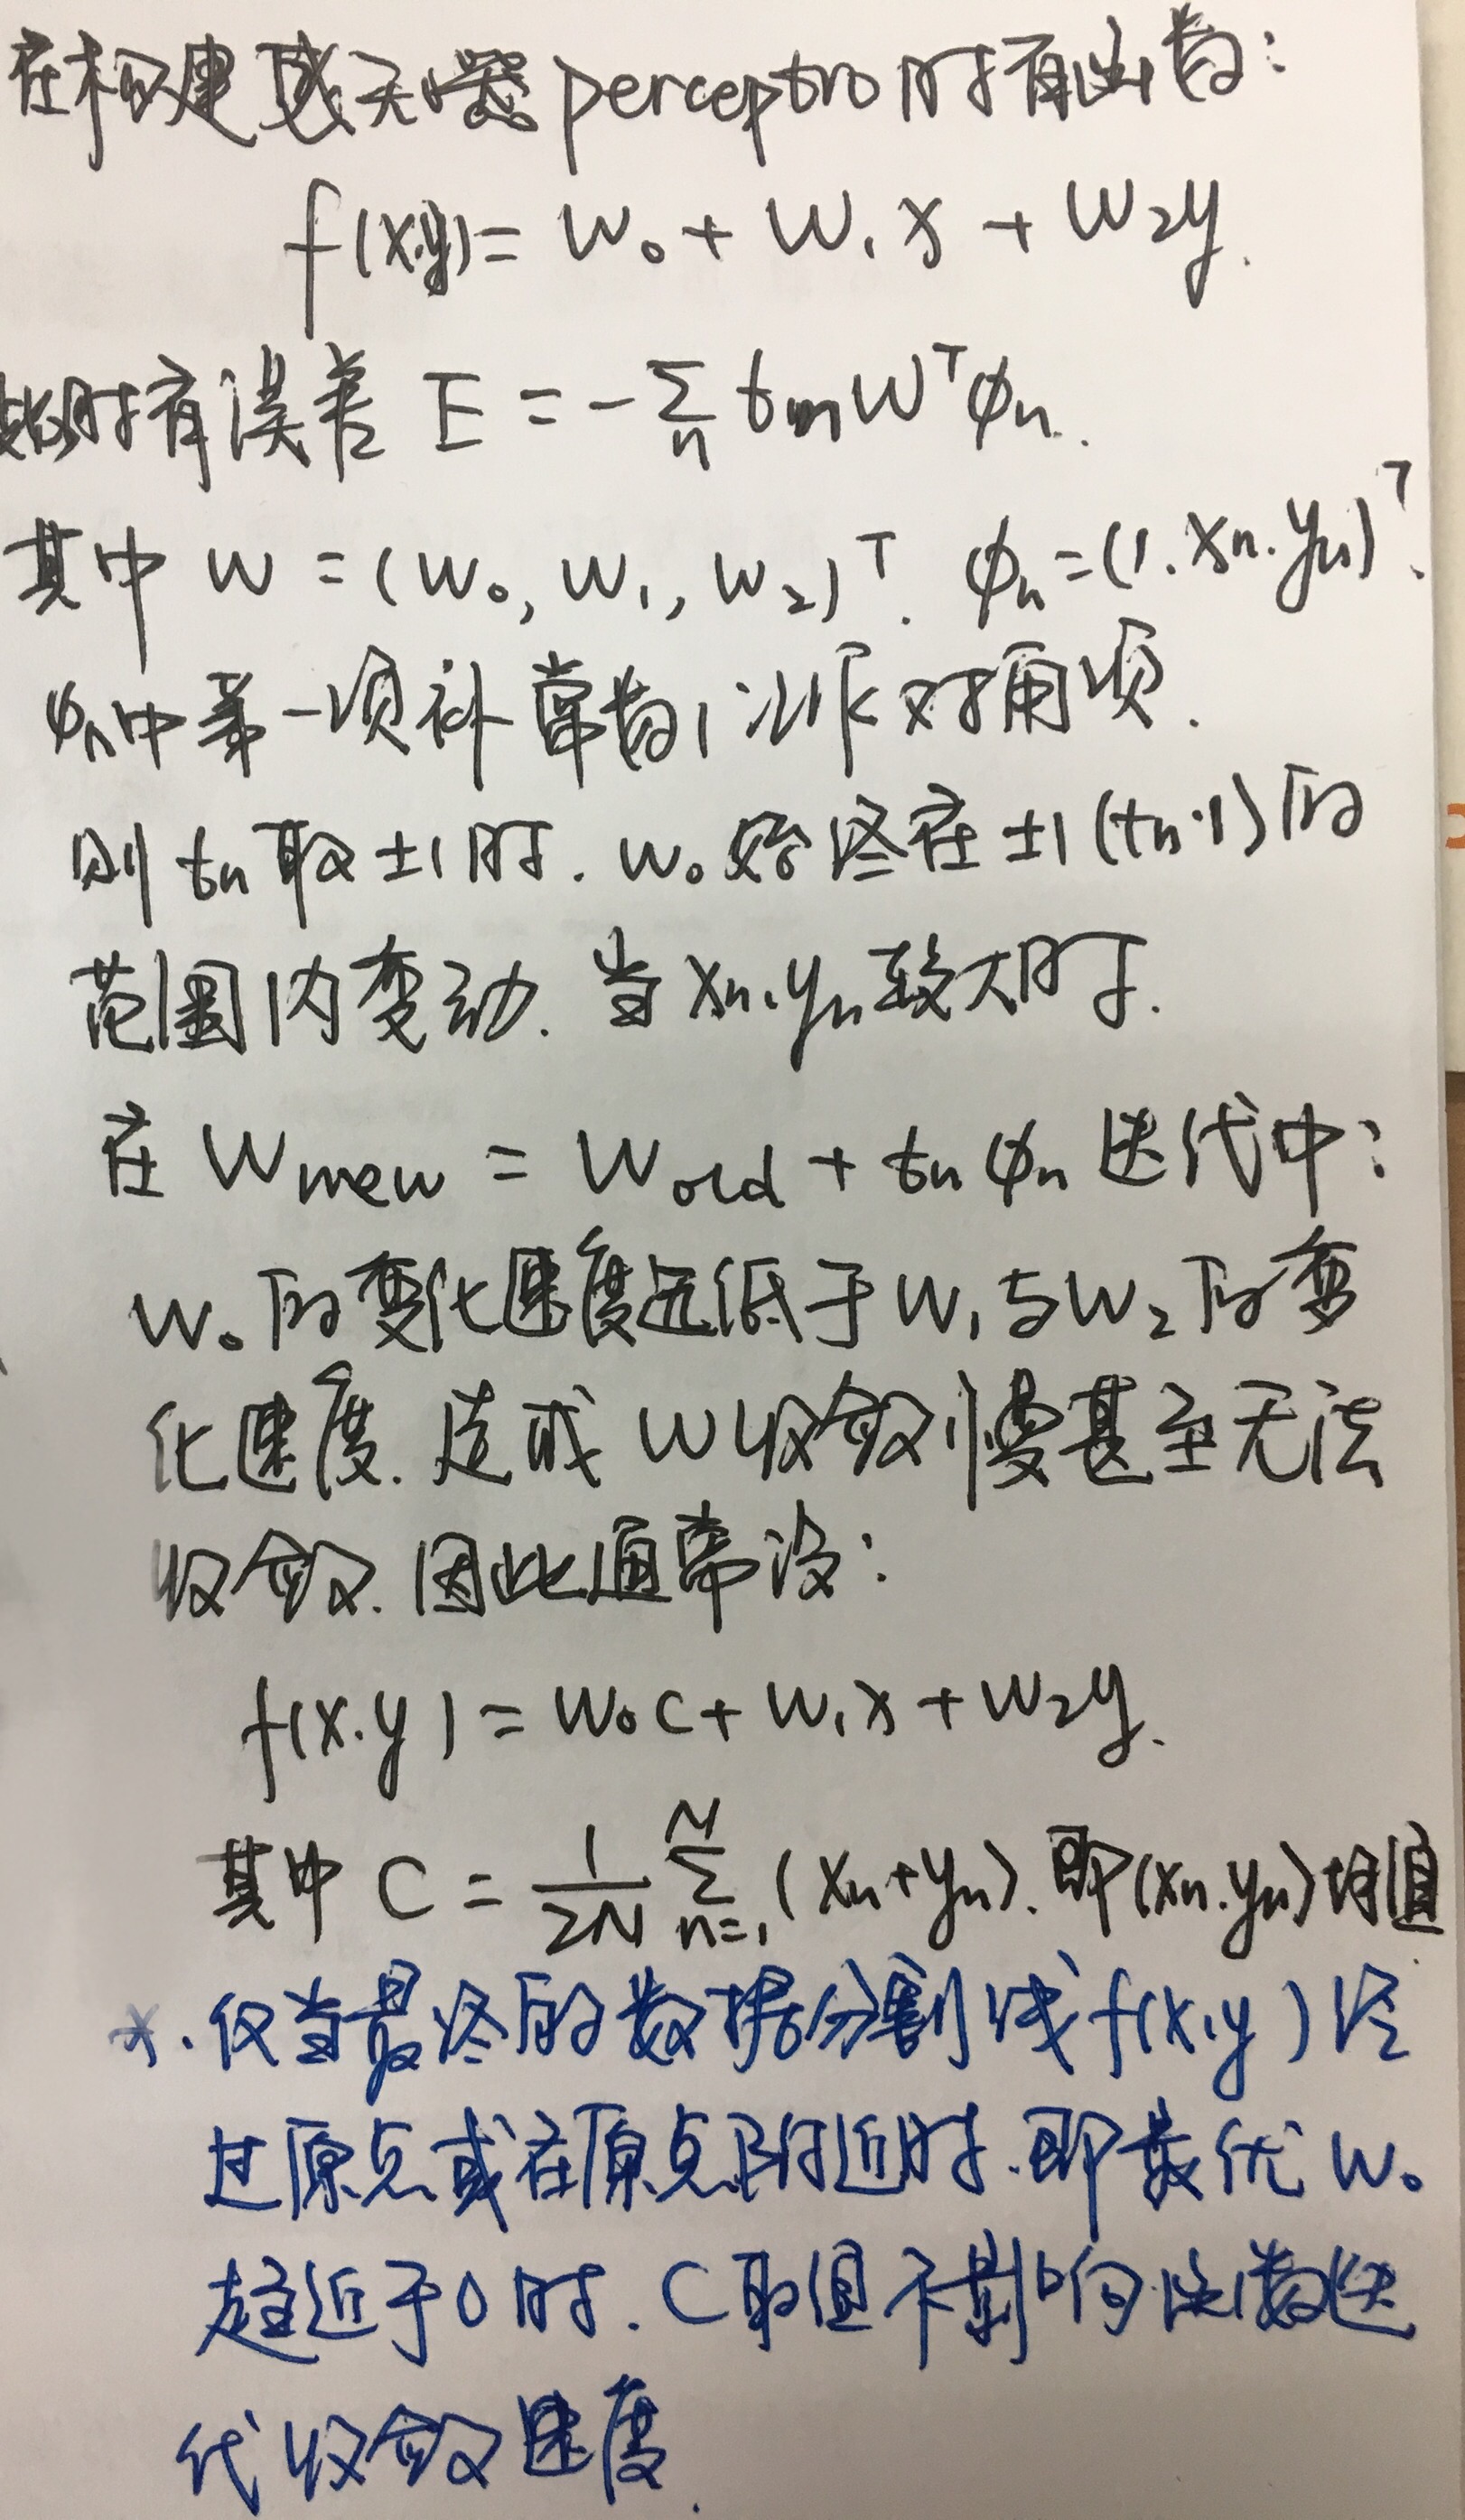 在构建感知器 perceptro 时有函数:
f(x,y) = w₀ + w₁x + w₂y.
此时有误差 E = -∑ₙ tₙ wᵀφₙ.
其中 w = (w₀, w₁, w₂)ᵀ. φₙ = (1. xₙ. yₙ)ᵀ.
φₙ中第一项补常数1以作对用项.
则 tₙ 取 ±1 时. w₀ 始终在 ±1 (tₙ·1) 的
范围内变动. 当 xₙ, yₙ 较大时.
在 Wnew = Wold + tₙ φₙ 迭代中:
w₀ 的变化速度远低于 w₁ 与 w₂ 的变
化速度. 造成 w 收敛慢甚至无法
收敛. 因此通常设:
f(x.y) = w₀c + w₁x + w₂y.
其中 C = 1/2N ∑ₙ₌₁ᴺ (xₙ+yₙ). 即(xₙ.yₙ)均值
*. 仅当最终的数据分割线 f(x,y) 经
过原点或在原点附近时. 即最优 w₀
趋近于0时. C取值不影响函数迭
代收敛速度.